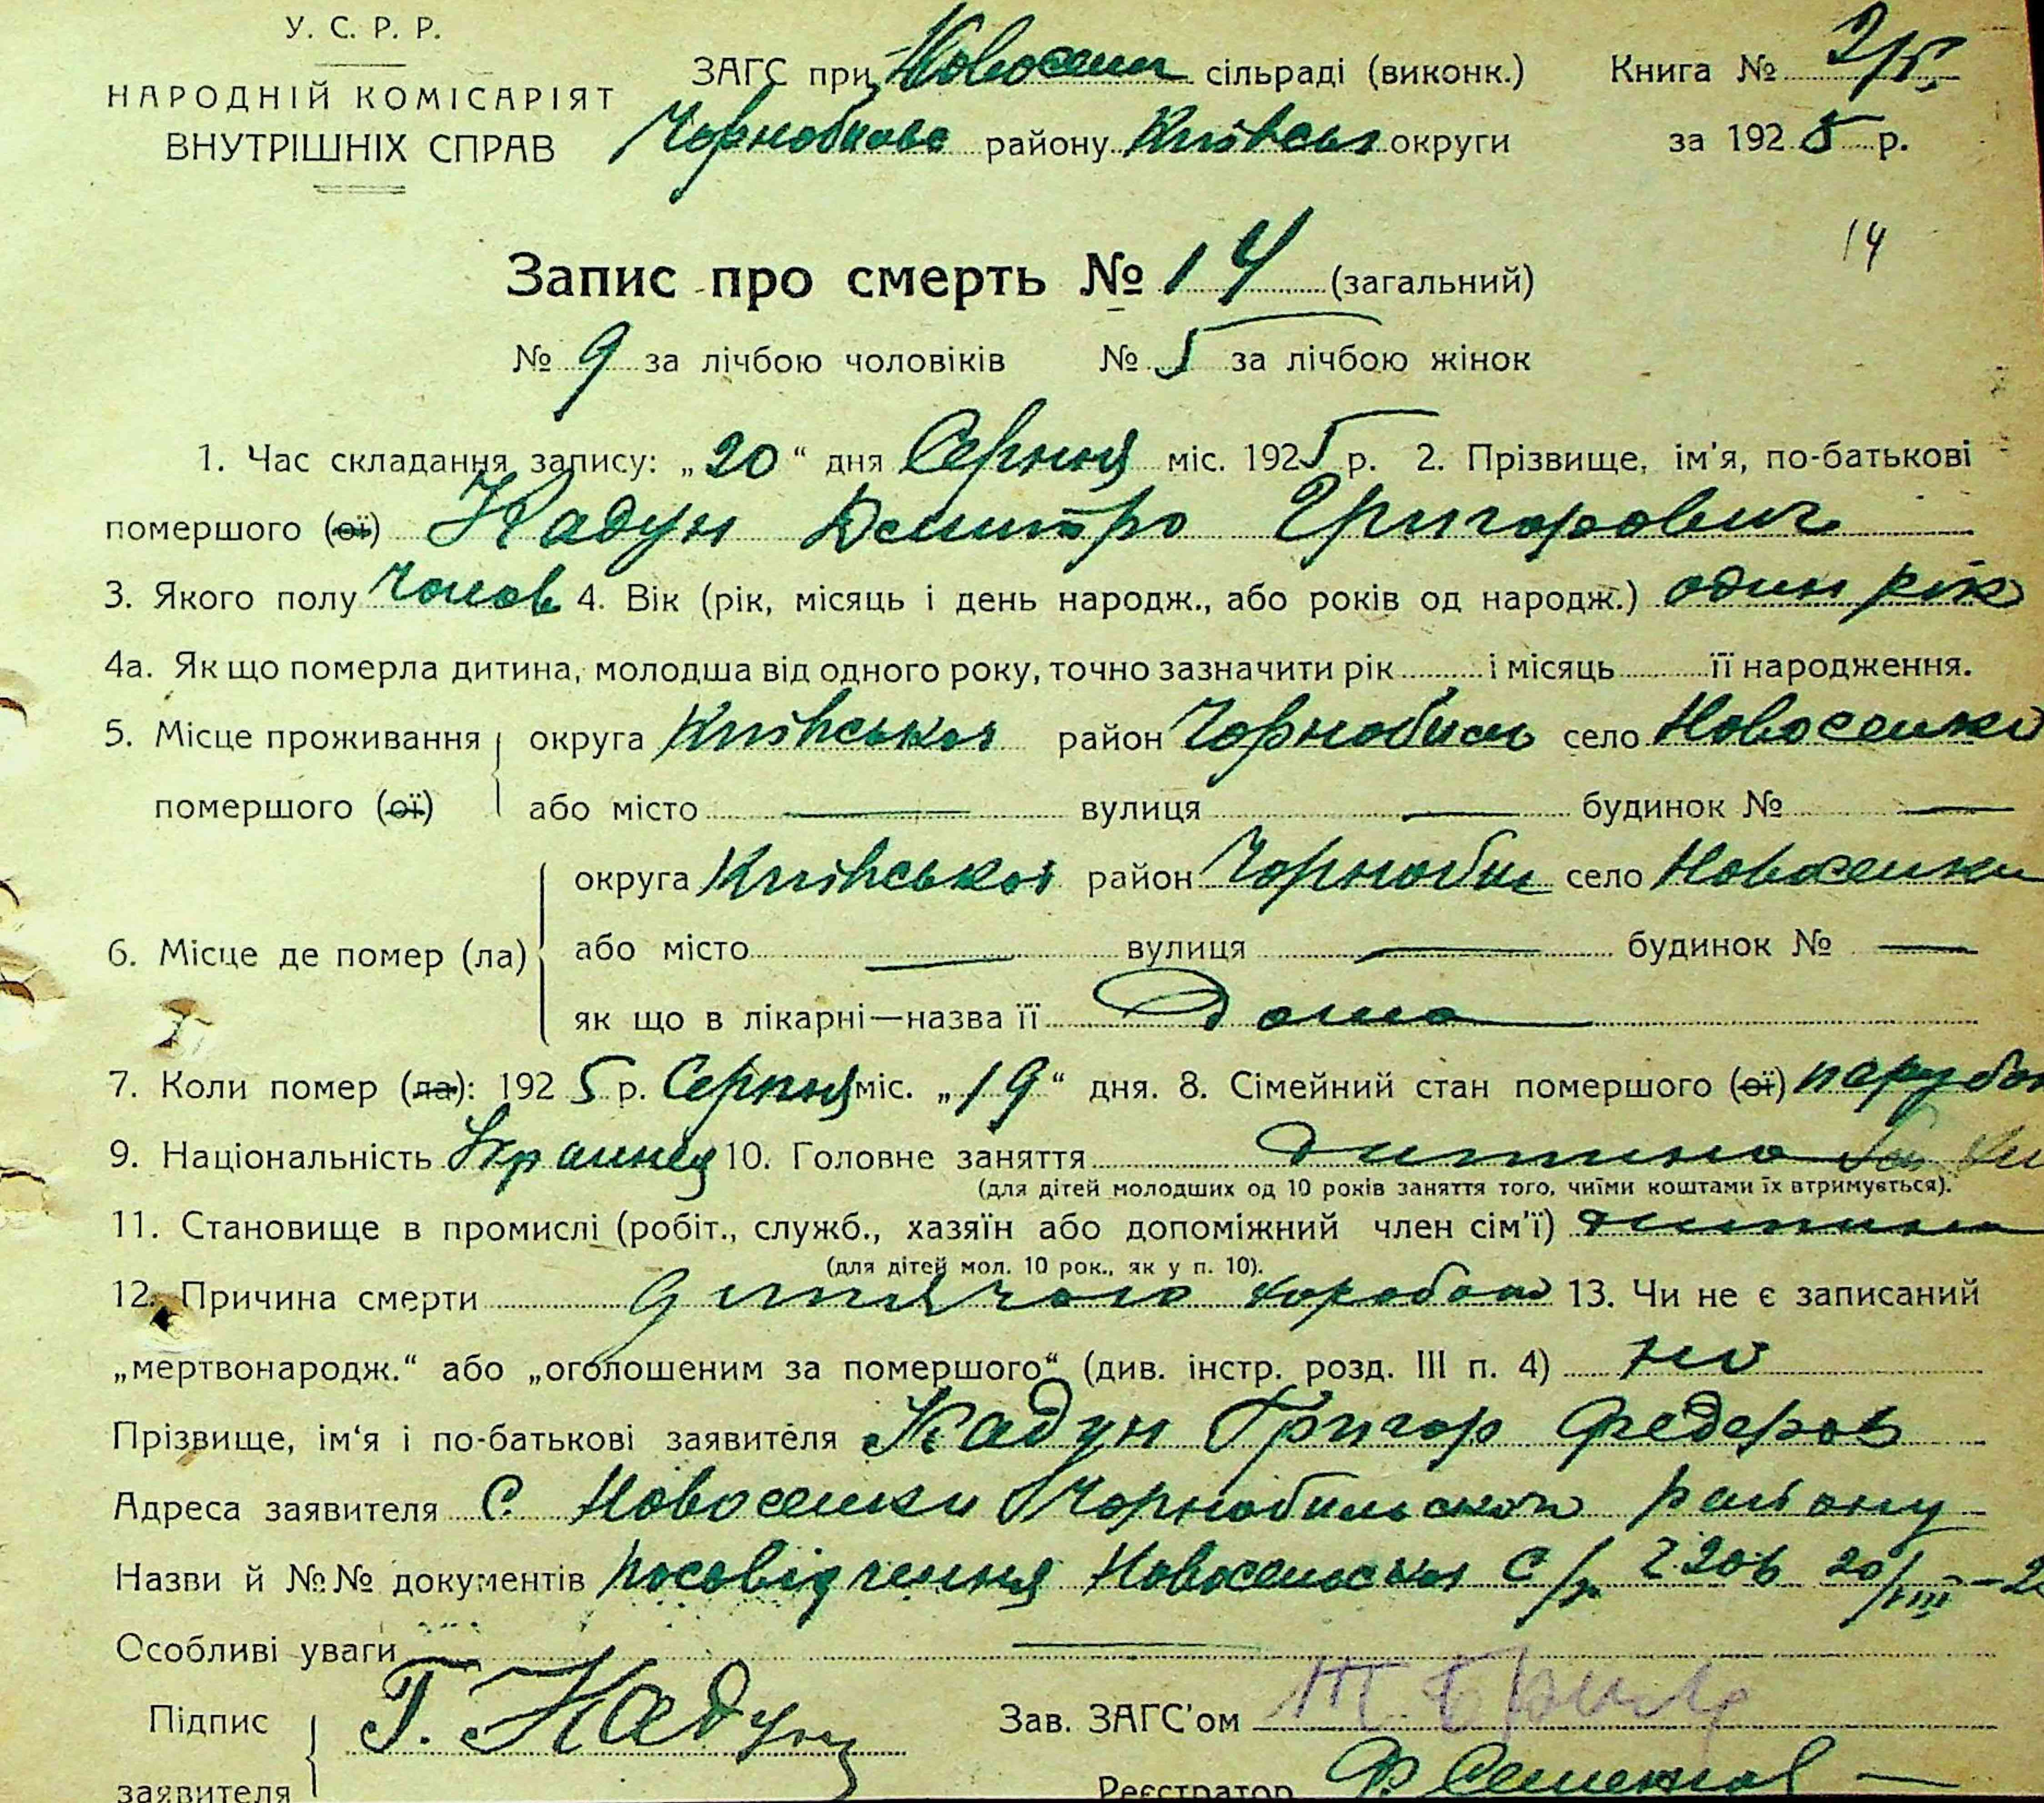 У. С. Р. Р.
НАРОДНІЙ КОМІСАРІЯТ
ВНУТРІШНІХ СПРАВ
ЗАГС при сільраді (виконк.)
району округи
Книга № 2/5
за 1925 р.
14
Запис про смерть № 14 (загальний)
№ 9 за лічбою чоловіків № 5 за лічбою жінок
1. Час складання запису: „20“ дня Серпня міс. 1925 р. 2. Прізвище, ім'я, по-батькові
помершого (ої) Кадун Дмитро Григорович
3. Якого полу Чолов 4. Вік (рік, місяць і день народж., або років од народж.) один рік
4а. Як що померла дитина, молодша від одного року, точно зазначити рік і місяць її народження.
5. Місце проживання округа Київська район Чорнобиль село Новоселки
помершого (ої) або місто — вулиця — будинок № —
округа Київська район Чорнобил село Новоселки
6. Місце де помер (ла) або місто — вулиця — будинок № —
як що в лікарні—назва її Дома
7. Коли помер (ла): 1925 р. Серпня міс. „19“ дня. 8. Сімейний стан помершого (ої)
9. Національність Українец 10. Головне заняття дитина
(для дітей молодших од 10 років заняття того, чиїми коштами їх втримується).
11. Становище в промислі (робіт., служб., хазяїн або допоміжний член сім'ї) дитина
(для дітей мол. 10 рок., як у п. 10).
12. Причина смерти 13. Чи не є записаний
„мертвонародж.“ або „оголошеним за помершого“ (див. інстр. розд. III п. 4)
Прізвище, ім'я і по-батькові заявителя Кадун Григор Федеров
Адреса заявителя С. Новоселки Чорнобильского району
Назви й №№ документів посовідчення С/р 20/VIII
Особливі уваги —
Підпис
заявителя
Г. Кадун
Зав. ЗАГС'ом
Реєстратор